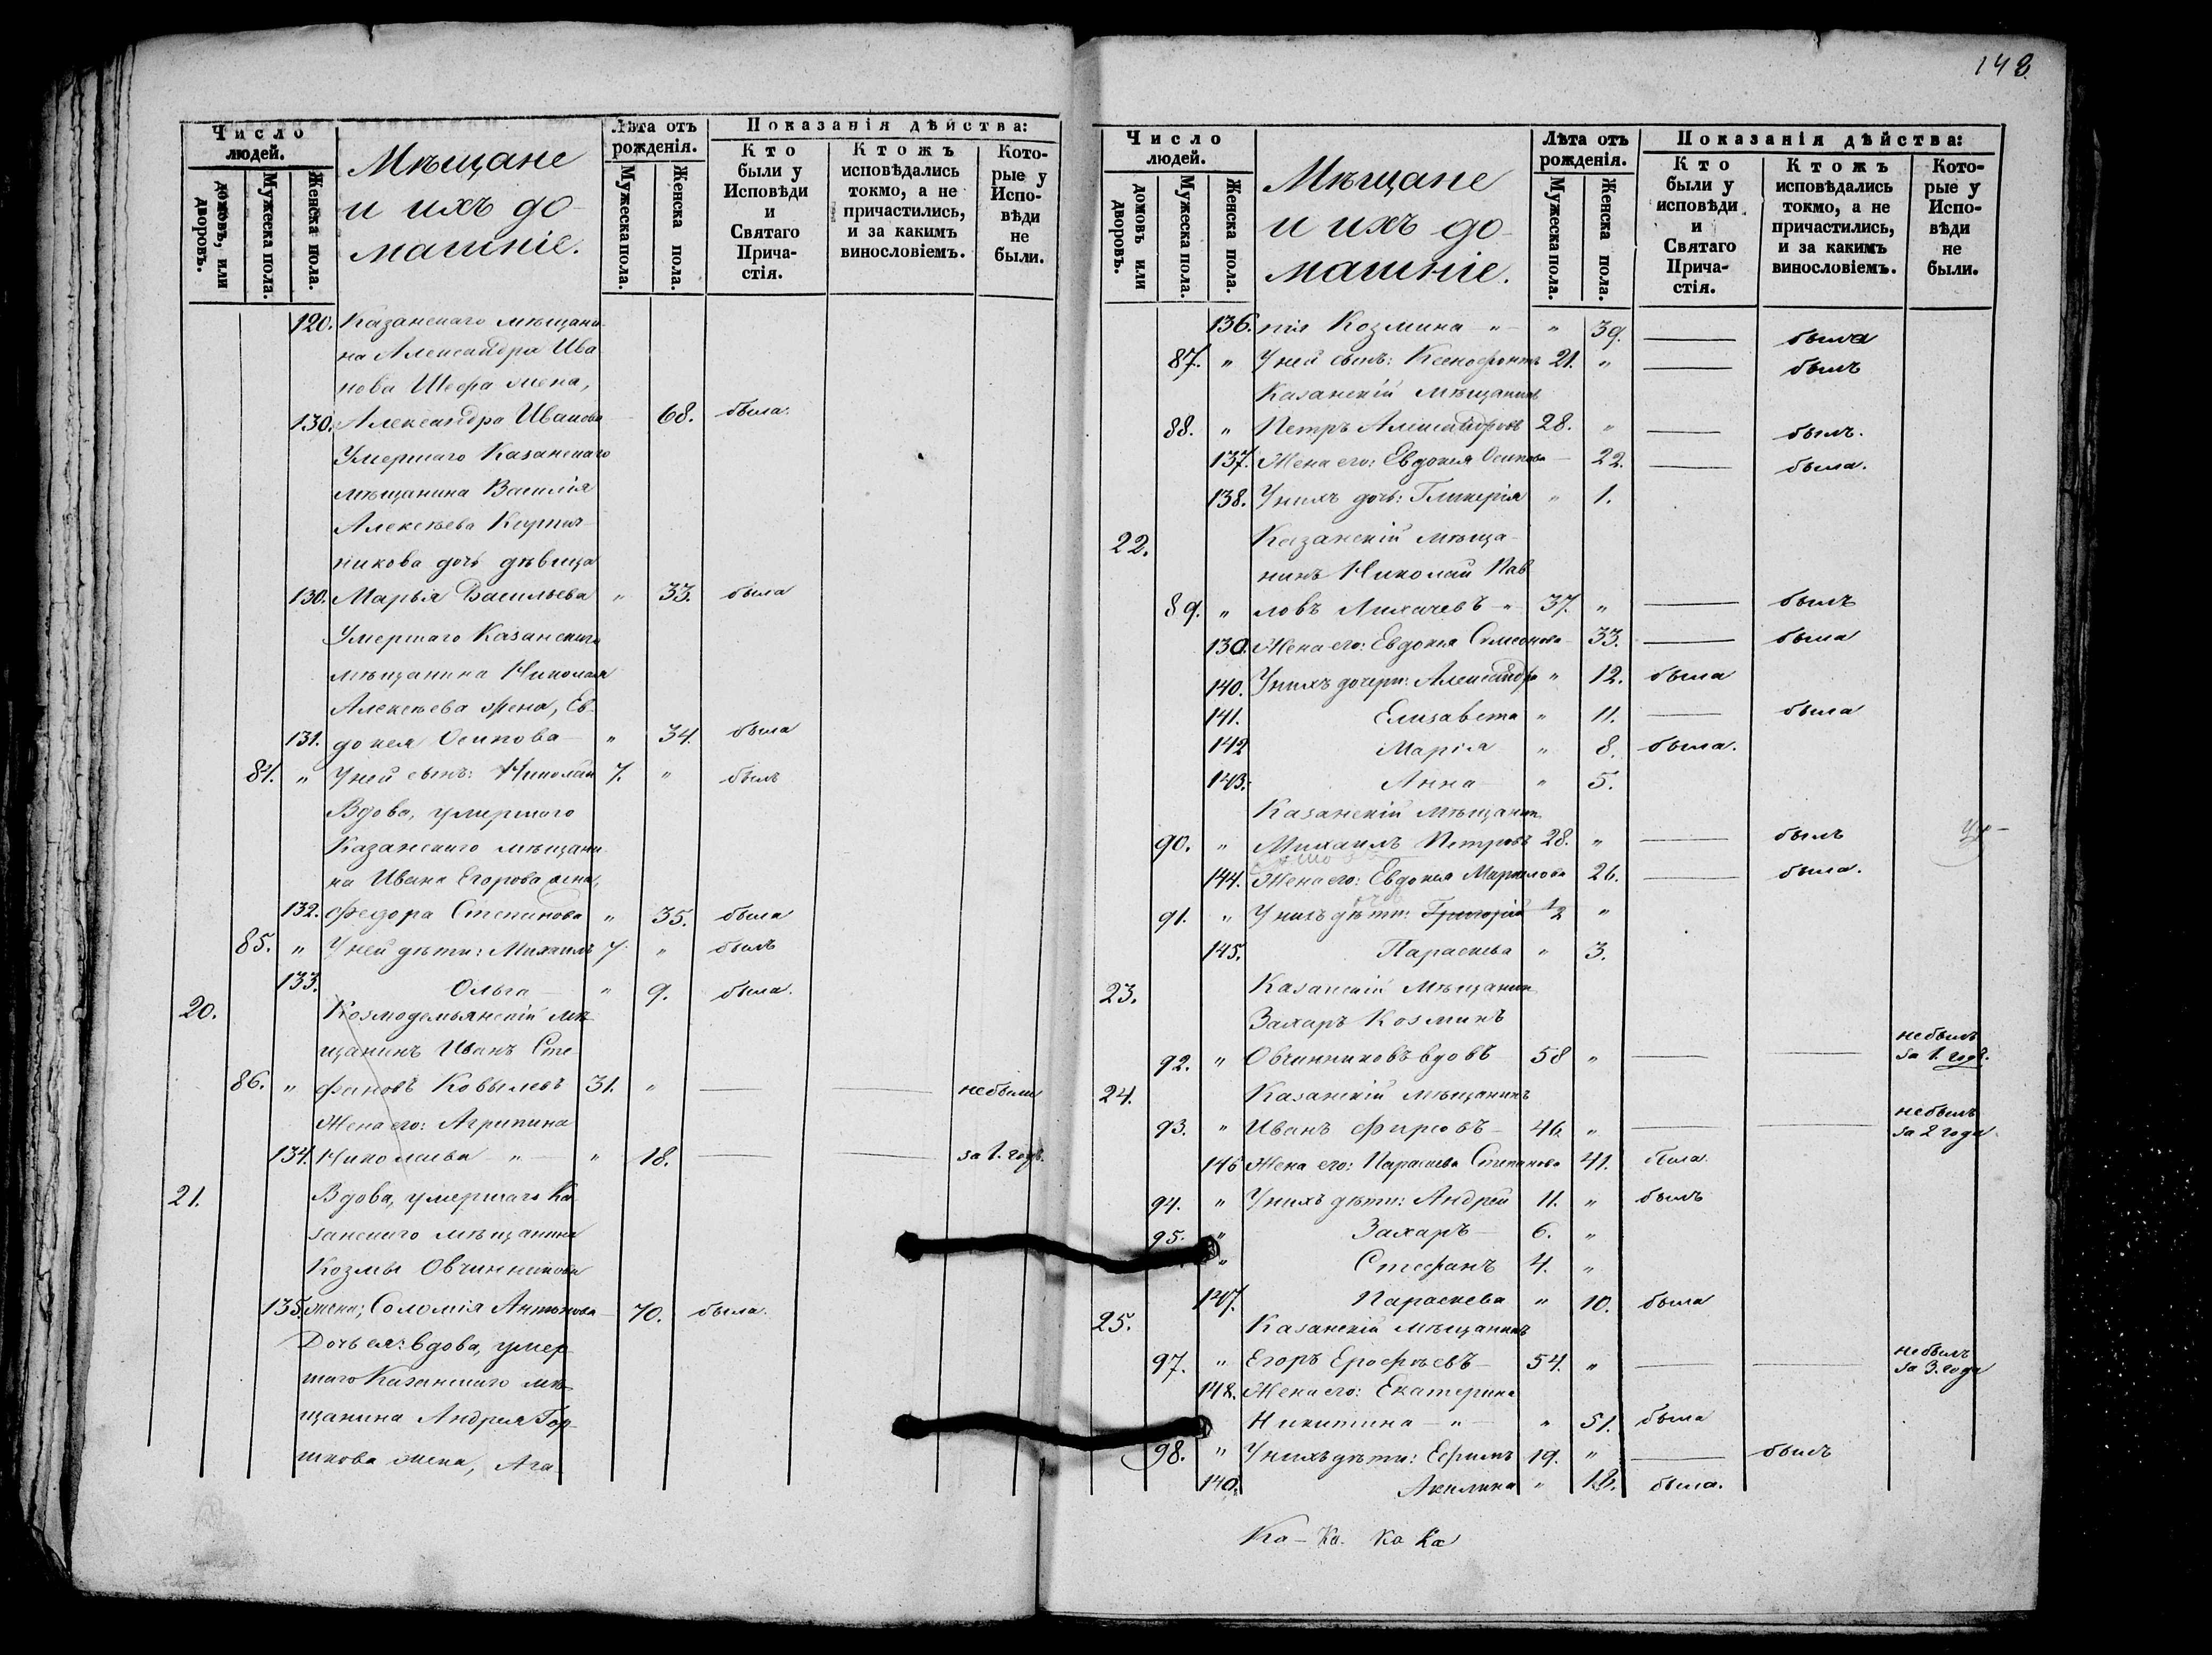 148.
Число людей.
домовъ, или дворовъ.
Мужеска пола.
Женска пола.
Мѣщане
и ихъ до-
машніе.
Лѣта отъ рожденія.
Мужеска пола.
Женска пола.
Показанія дѣйства:
Кто были у Исповѣди и Святаго Прича-стія.
Ктожъ исповѣдались токмо, а не причастились, и за какимъ винословіемъ.
Кото-рые у Испо-вѣди не были.
120. Казанскаго мѣщани-
на Александра Ива-
нова жена,
130. Александра Иванова 68. была.
Умершаго Казанскаго
мѣщанина Василія
Алексѣева Кирпич-
никова дочь дѣвица
130. Марья Васильева " 33. была
Умершаго Казанскаго
мѣщанина Николая
Алексѣева жена, Ев-
131. докея Осипова " 34. была
84. " У ней сынъ: Николай 7. " былъ
Вдова, умершаго
Казанскаго мѣщани-
на Ивана Егорова жена,
132. Федора Степанова " 35. была
85. " У ней дѣти: Михаилъ 7 " былъ
133. Ольга " 9. была.
20. Козмодемьянскій мѣ-
щанинъ Иванъ Сте-
86. " фановъ Ковылевъ 31. " небыли
Жена его: Агрипина
134. Николаева " " 18. за 1. годъ.
21. Вдова, умершаго Ка-
занскаго мѣщанина
Козмы Овчинникова
135. жена; Соломія Антонова 70. была.
Дочь ея: вдова, умер-
шаго Казанскаго мѣ-
щанина Андрея Гор-
шкова жена, Ага-
Число людей.
домовъ или дворовъ.
Мужеска пола.
Женска пола.
Мѣщане
и ихъ до-
машніе.
Лѣта отъ рожденія.
Мужеска пола.
Женска пола.
Показанія дѣйства:
Кто были у исповѣди и Святаго Прича-стія.
Ктожъ исповѣдались токмо, а не причастились, и за какимъ винословіемъ.
Кото-рые у Испо-вѣди не были.
136. пія Козмина " " 39. была
87. " У ней сынъ: Ксенофонтъ 21. " былъ
Казанскій мѣщанинъ
88. " Петръ Александровъ 28. " былъ.
137. Жена его: Евдокея Осипова 22. была.
138. У нихъ дочь: Гликерія " 1.
22. Казанскій мѣща-
нинъ Николай Пав-
89. " ловъ Лихачевъ " 37. " былъ
130. Жена его: Евдокея Симеонова 33. была
140. У нихъ дочери: Александра " 12. была
141. Елизавета " 11. была
142 Марія " 8. была.
143. Анна " 5.
Казанскій мѣщанинъ
90. " Михаилъ Петровъ 28. " былъ
144. Жена его: Евдокея Маркелова 26. была.
91. " У нихъ дѣти: Григорій 1/2 "
145. Параскева " 3.
23. Казанскій мѣщанинъ
Захаръ Козминъ
92. " Овчинниковъ вдовъ 58 " небылъ за 1. годъ.
24. Казанскій мѣщанинъ
93. " Иванъ Фирсовъ 46 " небылъ за 2 года.
146 Жена его: Параскева Степанова 41. была.
94. " У нихъ дѣти: Андрей 11. " былъ
95. " Захаръ 6. "
" Стефанъ 4. "
147. Параскева " 10. была
25. Казанскій мѣщанинъ
97. " Егоръ Ерофѣевъ 54. " небылъ за 3. года
148. Жена его: Екатерина
Никитина " " 51. была
98. " У нихъ дѣти: Ефимъ 19. " былъ
140. Акилина " 18. была.
Ка- Ка. Ка Ка